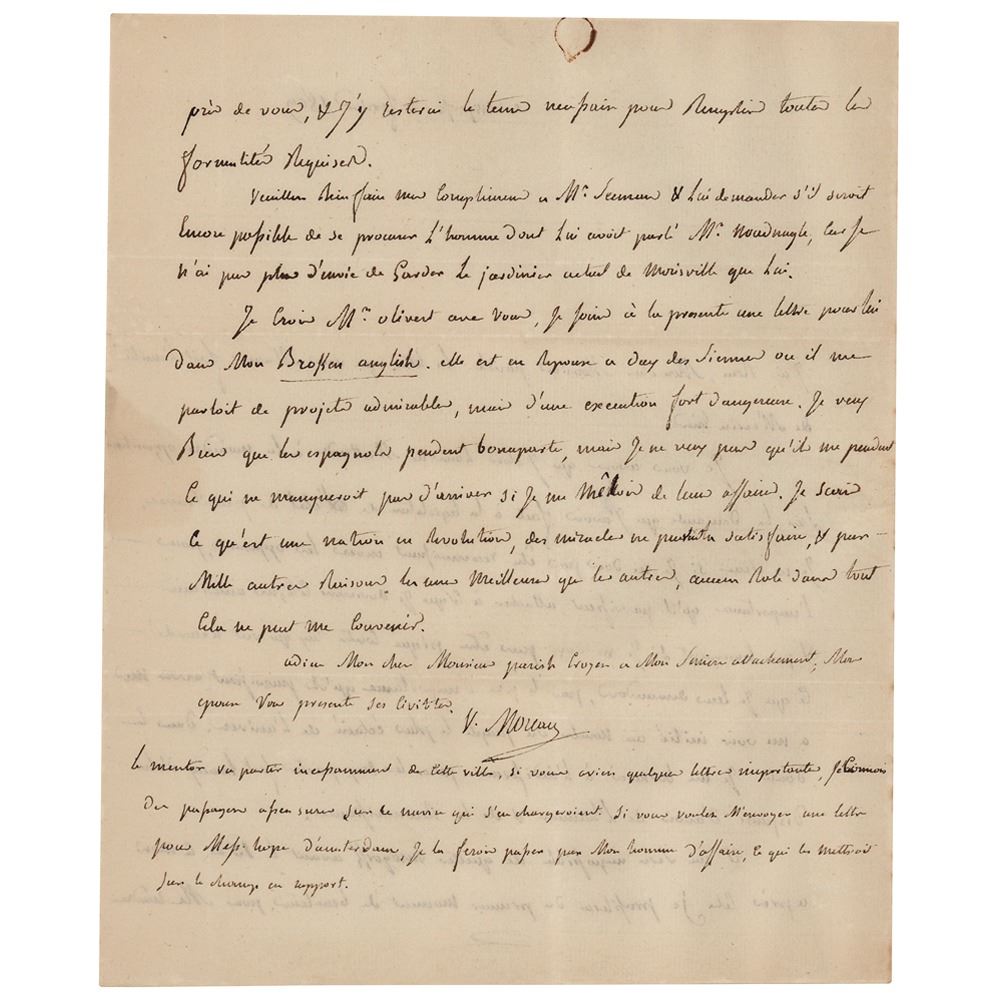 près de vous, & J'y resterai le tems necessaire pour Remplir toutes les
formalités Requises.
Veuilles Bien faire mes Complimens a Mr. Seeman & Lui demander s'il seroit
Encore possible de se procurer L'homme dont Lui avoit parlé Mr. , Car Je
N'ai pas plus d'envie de Garder Le jardinier actuel de Morisville que Lui.
Je Crois Mr. olivert avec Vous, Je Joins à la presente une lettre pour lui
dans Mon Broken english. elle est en Reponse a deux des Siennes ou il me
parloit de projets admirables, mais d'une execution fort dangereuse. Je veux
Bien que les espagnols pendent bonaparte, mais Je ne veux pas qu'il me pendent
Ce qui ne manqueroit pas d'arriver si Je me Mêlois de leurs affaires. Je scais
Ce qu'est une nation en Revolution, des miracles ne peuvent la satisfaire, & par
Mille autres Raisons les unes Meilleures que les autres, aucun Role dans tout
Cela ne peut me Convenir.
adieu Mon cher Monsieur parish Croyez a Mon Sincere attachement, Mon
epouse Vous presente ses Civilités.
V. Moreau
le mentor va partir incessamment de Cette ville, si vous aviez quelques lettres importantes, Je Connois
Des passagers assez surs sur le navire qui s'en chargeroient. Si vous voulez M'envoyer une lettre
pour Mess. hope d'amsterdam, Je la ferois passer par Mon homme d'affaire, Ce qui les mettroit
sur le champ en rapport.